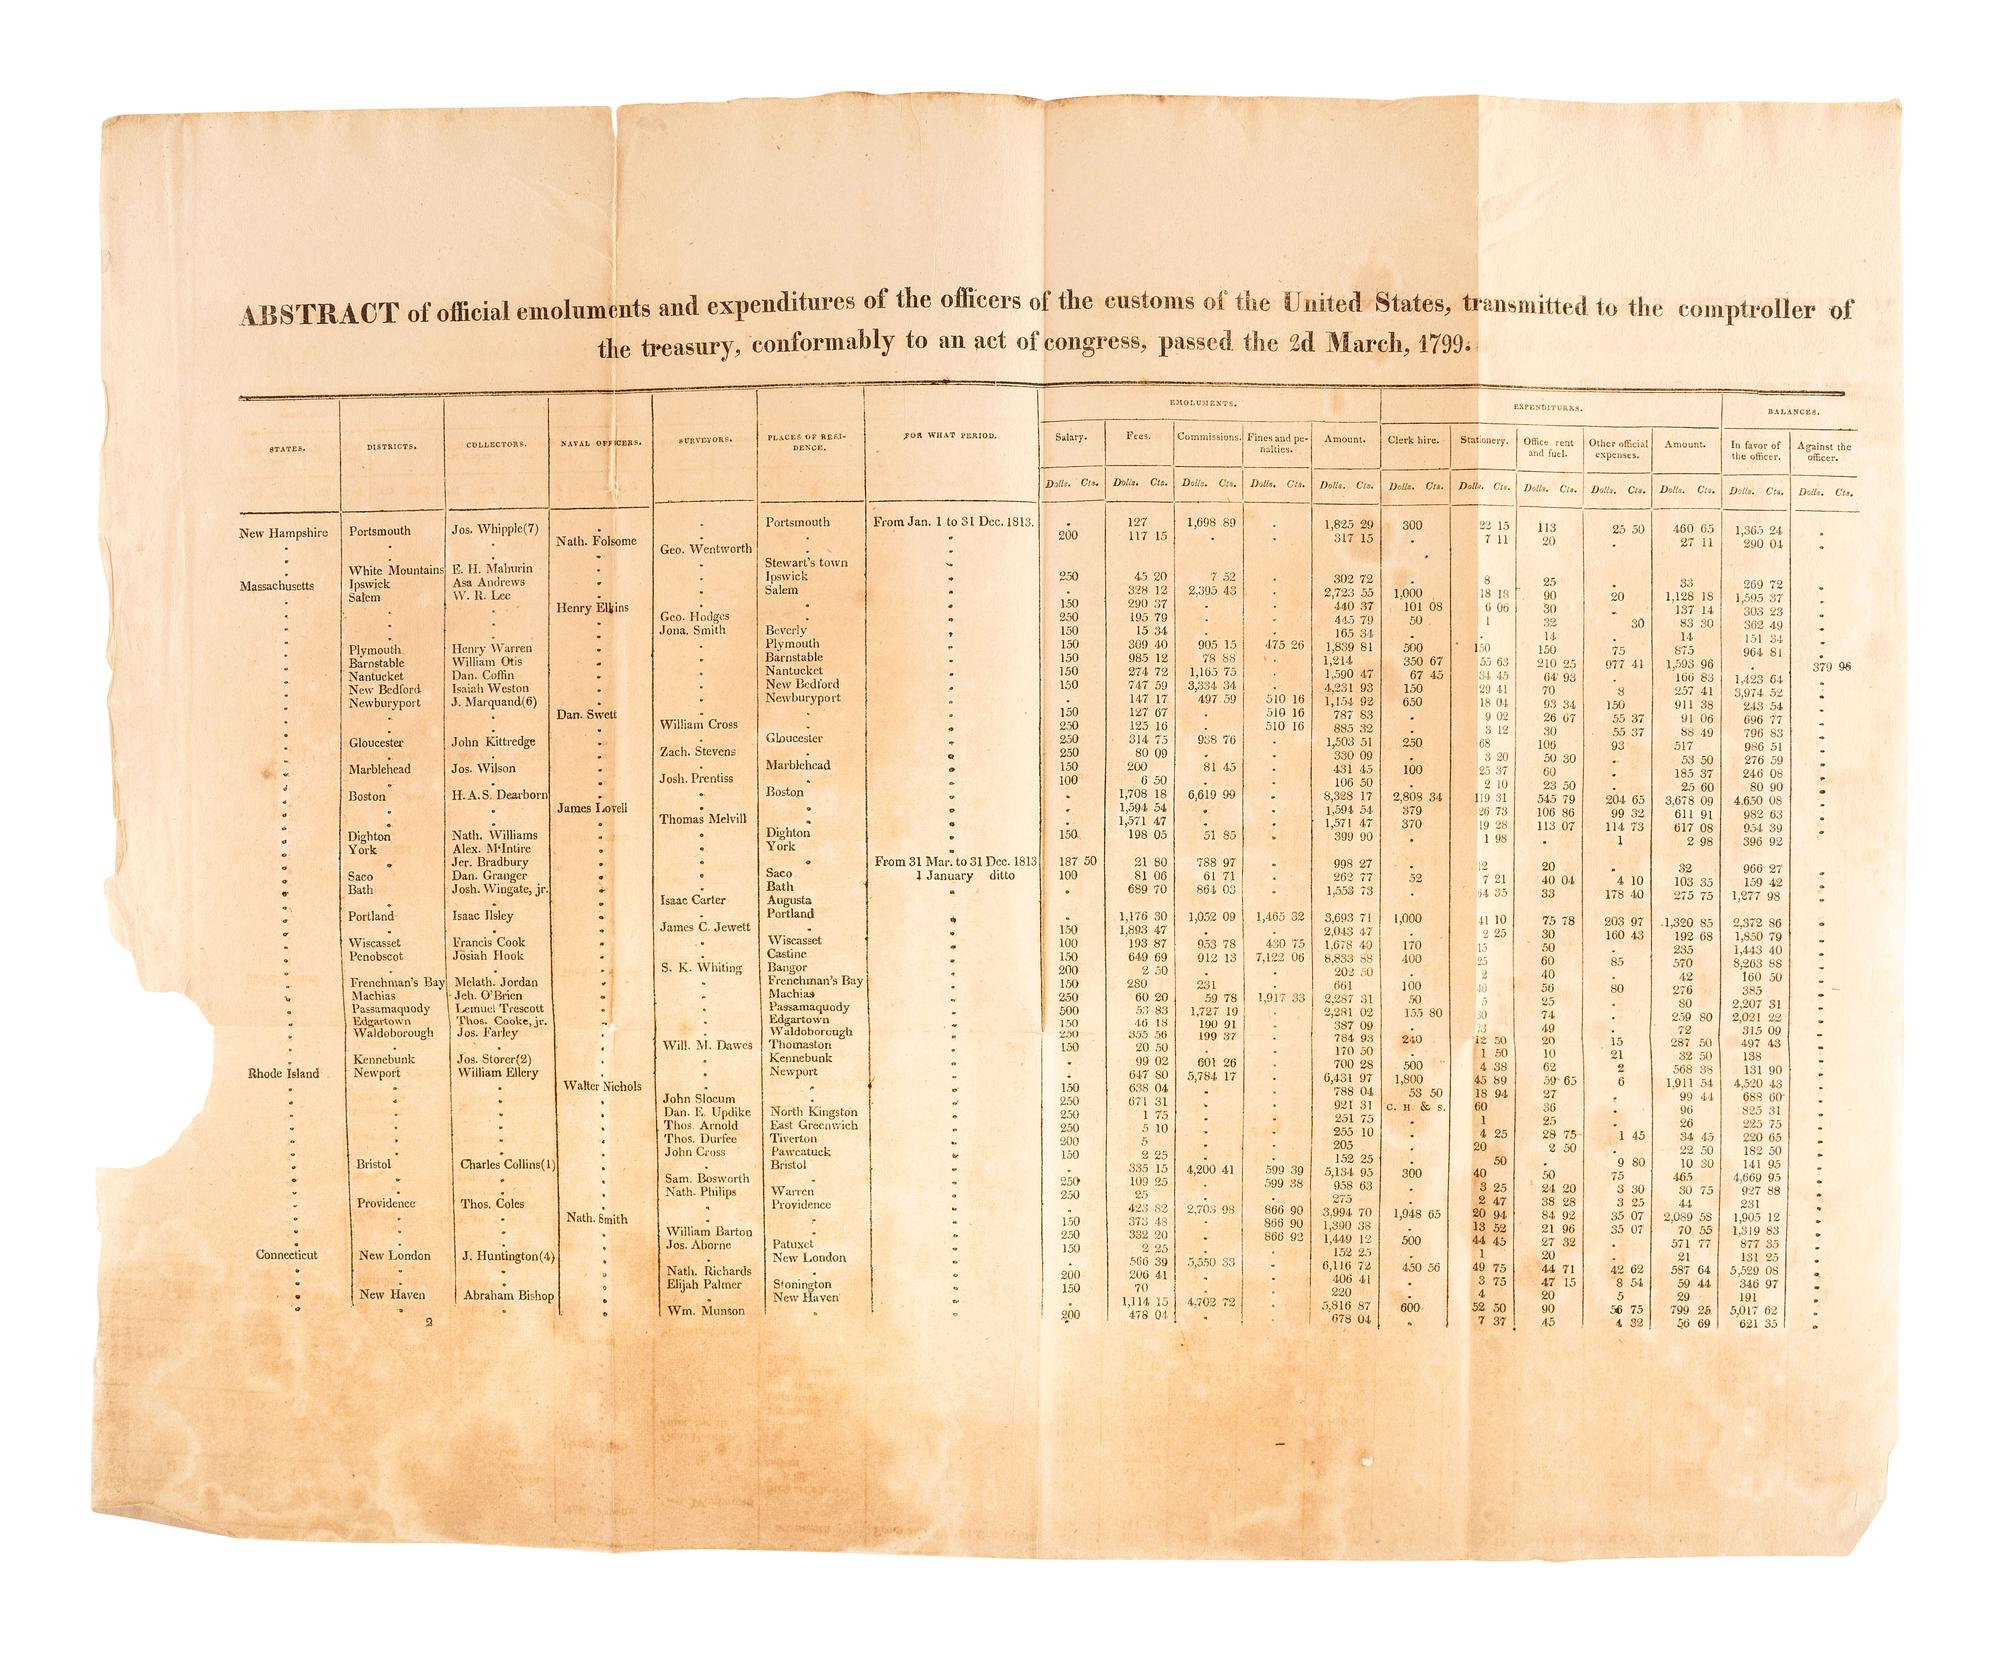 ABSTRACT of official emoluments and expenditures of the officers of the customs of the United States, transmitted to the comptroller of
the treasury, conformably to an act of congress, passed the 2d March, 1799.
EMOLUMENTS. EXPENDITURES. BALANCES.
STATES. DISTRICTS. COLLECTORS. NAVAL OFFICERS. SURVEYORS. PLACES OF RESI-DENCE. FOR WHAT PERIOD. Salary. Fees. Commissions. Fines and pe-nalties. Amount. Clerk hire. Stationery. Office rent and fuel. Other official expenses. Amount. In favor of the officer. Against the officer.
Dolls. Cts. Dolls. Cts. Dolls. Cts. Dolls. Cts. Dolls. Cts. Dolls. Cts. Dolls. Cts. Dolls. Cts. Dolls. Cts. Dolls. Cts. Dolls. Cts. Dolls. Cts.
New Hampshire Portsmouth Jos. Whipple(7) Portsmouth From Jan. 1 to 31 Dec. 1813. 127 1,698 89 1,825 29 300 22 15 113 25 50 460 65 1,365 24
Nath. Folsome 200 117 15 317 15 7 11 20 27 11 290 04
Geo. Wentworth
White Mountains E. H. Mahurin Stewart's town
Massachusetts Ipswick Asa Andrews Ipswick 250 45 20 7 52 302 72 8 25 33 269 72
Salem W. R. Lee Salem 328 12 2,395 43 2,723 55 1,000 18 18 90 20 1,128 18 1,595 37
Henry Elkins 150 290 37 440 37 101 08 6 06 30 137 14 303 23
Geo. Hodges 250 195 79 445 79 50 1 32 30 83 30 362 49
Jona. Smith Beverly 150 15 34 165 34 14 14 151 34
Plymouth Henry Warren Plymouth 150 309 40 905 15 475 26 1,839 81 500 150 150 75 875 964 81
Barnstable William Otis Barnstable 150 985 12 78 88 1,214 350 67 55 63 210 25 977 41 1,593 96 379 96
Nantucket Dan. Coffin Nantucket 150 274 72 1,165 75 1,590 47 67 45 34 45 64 93 166 83 1,423 64
New Bedford Isaiah Weston New Bedford 150 747 59 3,334 34 4,231 93 150 29 41 70 8 257 41 3,974 52
Newburyport J. Marquand(6) Newburyport 147 17 497 59 510 16 1,154 92 650 18 04 93 34 150 911 38 243 54
Dan. Swett 150 127 67 510 16 787 83 9 02 26 67 55 37 91 06 696 77
William Cross 250 125 16 510 16 885 32 3 12 30 55 37 88 49 796 83
Gloucester John Kittredge Gloucester 250 314 75 938 76 1,503 51 250 68 106 93 517 986 51
Zach. Stevens 250 80 09 330 09 3 20 50 30 53 50 276 59
Marblehead Jos. Wilson Marblehead 150 200 81 45 431 45 100 25 37 60 185 37 246 08
Josh. Prentiss 100 6 50 106 50 2 10 23 50 25 60 80 90
Boston H.A.S. Dearborn Boston 1,708 18 6,619 99 8,328 17 2,808 34 119 31 545 79 204 65 3,678 09 4,650 08
James Lovell 1,594 54 1,594 54 379 26 73 106 86 99 32 611 91 982 63
Thomas Melvill 1,571 47 1,571 47 370 19 28 113 07 114 73 617 08 954 39
Dighton Nath. Williams Dighton 150 198 05 51 85 399 90 1 98 1 2 98 396 92
York Alex. M'Intire York
Jer. Bradbury From 31 Mar. to 31 Dec. 1813 187 50 21 80 788 97 998 27 12 20 32 966 27
Saco Dan. Granger Saco 1 January ditto 100 81 06 61 71 262 77 52 7 21 40 04 4 10 103 35 159 42
Bath Josh. Wingate, jr. Bath 689 70 864 03 1,553 73 64 35 33 178 40 275 75 1,277 98
Isaac Carter Augusta
Portland Isaac Ilsley Portland 1,176 30 1,052 09 1,465 32 3,693 71 1,000 41 10 75 78 203 97 1,320 85 2,372 86
James C. Jewett 150 1,893 47 2,043 47 2 25 30 160 43 192 68 1,850 79
Wiscasset Francis Cook Wiscasset 100 193 87 953 78 430 75 1,678 40 170 15 50 235 1,443 40
Penobscot Josiah Hook Castine 150 649 69 912 13 7,122 06 8,833 88 400 25 60 85 570 8,263 88
S. K. Whiting Bangor 200 2 50 202 50 2 40 42 160 50
Frenchman's Bay Melath. Jordan Frenchman's Bay 150 280 231 661 100 40 56 80 276 385
Machias Jeh. O'Brien Machias 250 60 20 59 78 1,917 33 2,287 31 50 5 25 80 2,207 31
Passamaquody Lemuel Trescott Passamaquody 500 53 83 1,727 19 2,281 02 155 80 30 74 259 80 2,021 22
Edgartown Thos. Cooke, jr. Edgartown 150 46 18 190 91 387 09 23 49 72 315 09
Waldoborough Jos. Farley Waldoborough 250 355 56 199 37 784 93 240 12 50 20 15 287 50 497 43
Will. M. Dawes Thomaston 150 20 50 170 50 1 50 10 21 32 50 138
Kennebunk Jos. Storer(2) Kennebunk 99 02 601 26 700 28 500 4 38 62 2 568 38 131 90
Rhode Island Newport William Ellery Newport 647 80 5,784 17 6,431 97 1,800 45 89 59 65 6 1,911 54 4,520 43
Walter Nichols 150 638 04 788 04 53 50 18 94 27 99 44 688 60
John Slocum 250 671 31 921 31 C. H & S. 60 36 96 825 31
Dan. E. Updike North Kingston 250 1 75 251 75 1 25 26 225 75
Thos. Arnold East Greenwich 250 5 10 255 10 4 25 28 75 1 45 34 45 220 65
Thos. Durfee Tiverton 200 5 205 20 2 50 22 50 182 50
John Cross Pawcatuck 150 2 25 152 25 50 9 80 10 30 141 95
Bristol Charles Collins(1) Bristol 335 15 4,200 41 599 39 5,134 95 300 40 50 75 465 4,669 95
Sam. Bosworth 250 109 25 599 38 958 63 3 25 24 20 3 30 30 75 927 88
Nath. Philips Warren 250 25 275 2 47 38 28 3 25 44 231
Providence Thos. Coles Providence 423 82 2,703 98 866 90 3,994 70 1,948 65 20 94 84 92 35 07 2,089 58 1,905 12
Nath. Smith 150 373 48 866 90 1,390 38 13 52 21 96 35 07 70 55 1,319 83
William Barton 250 332 20 866 92 1,449 12 500 44 45 27 32 571 77 877 35
Jos. Aborne Patuxet 150 2 25 152 25 1 20 21 131 25
Connecticut New London J. Huntington(4) New London 566 39 5,550 33 6,116 72 450 56 49 75 44 71 42 62 587 64 5,529 08
Nath. Richards 200 206 41 406 41 3 75 47 15 8 54 59 44 346 97
Elijah Palmer Stonington 150 70 220 4 20 5 29 191
New Haven Abraham Bishop New Haven 1,114 15 4,702 72 5,816 87 600 52 50 90 56 75 799 25 5,017 62
Wm. Munson 200 478 04 678 04 7 37 45 4 32 56 69 621 35
2